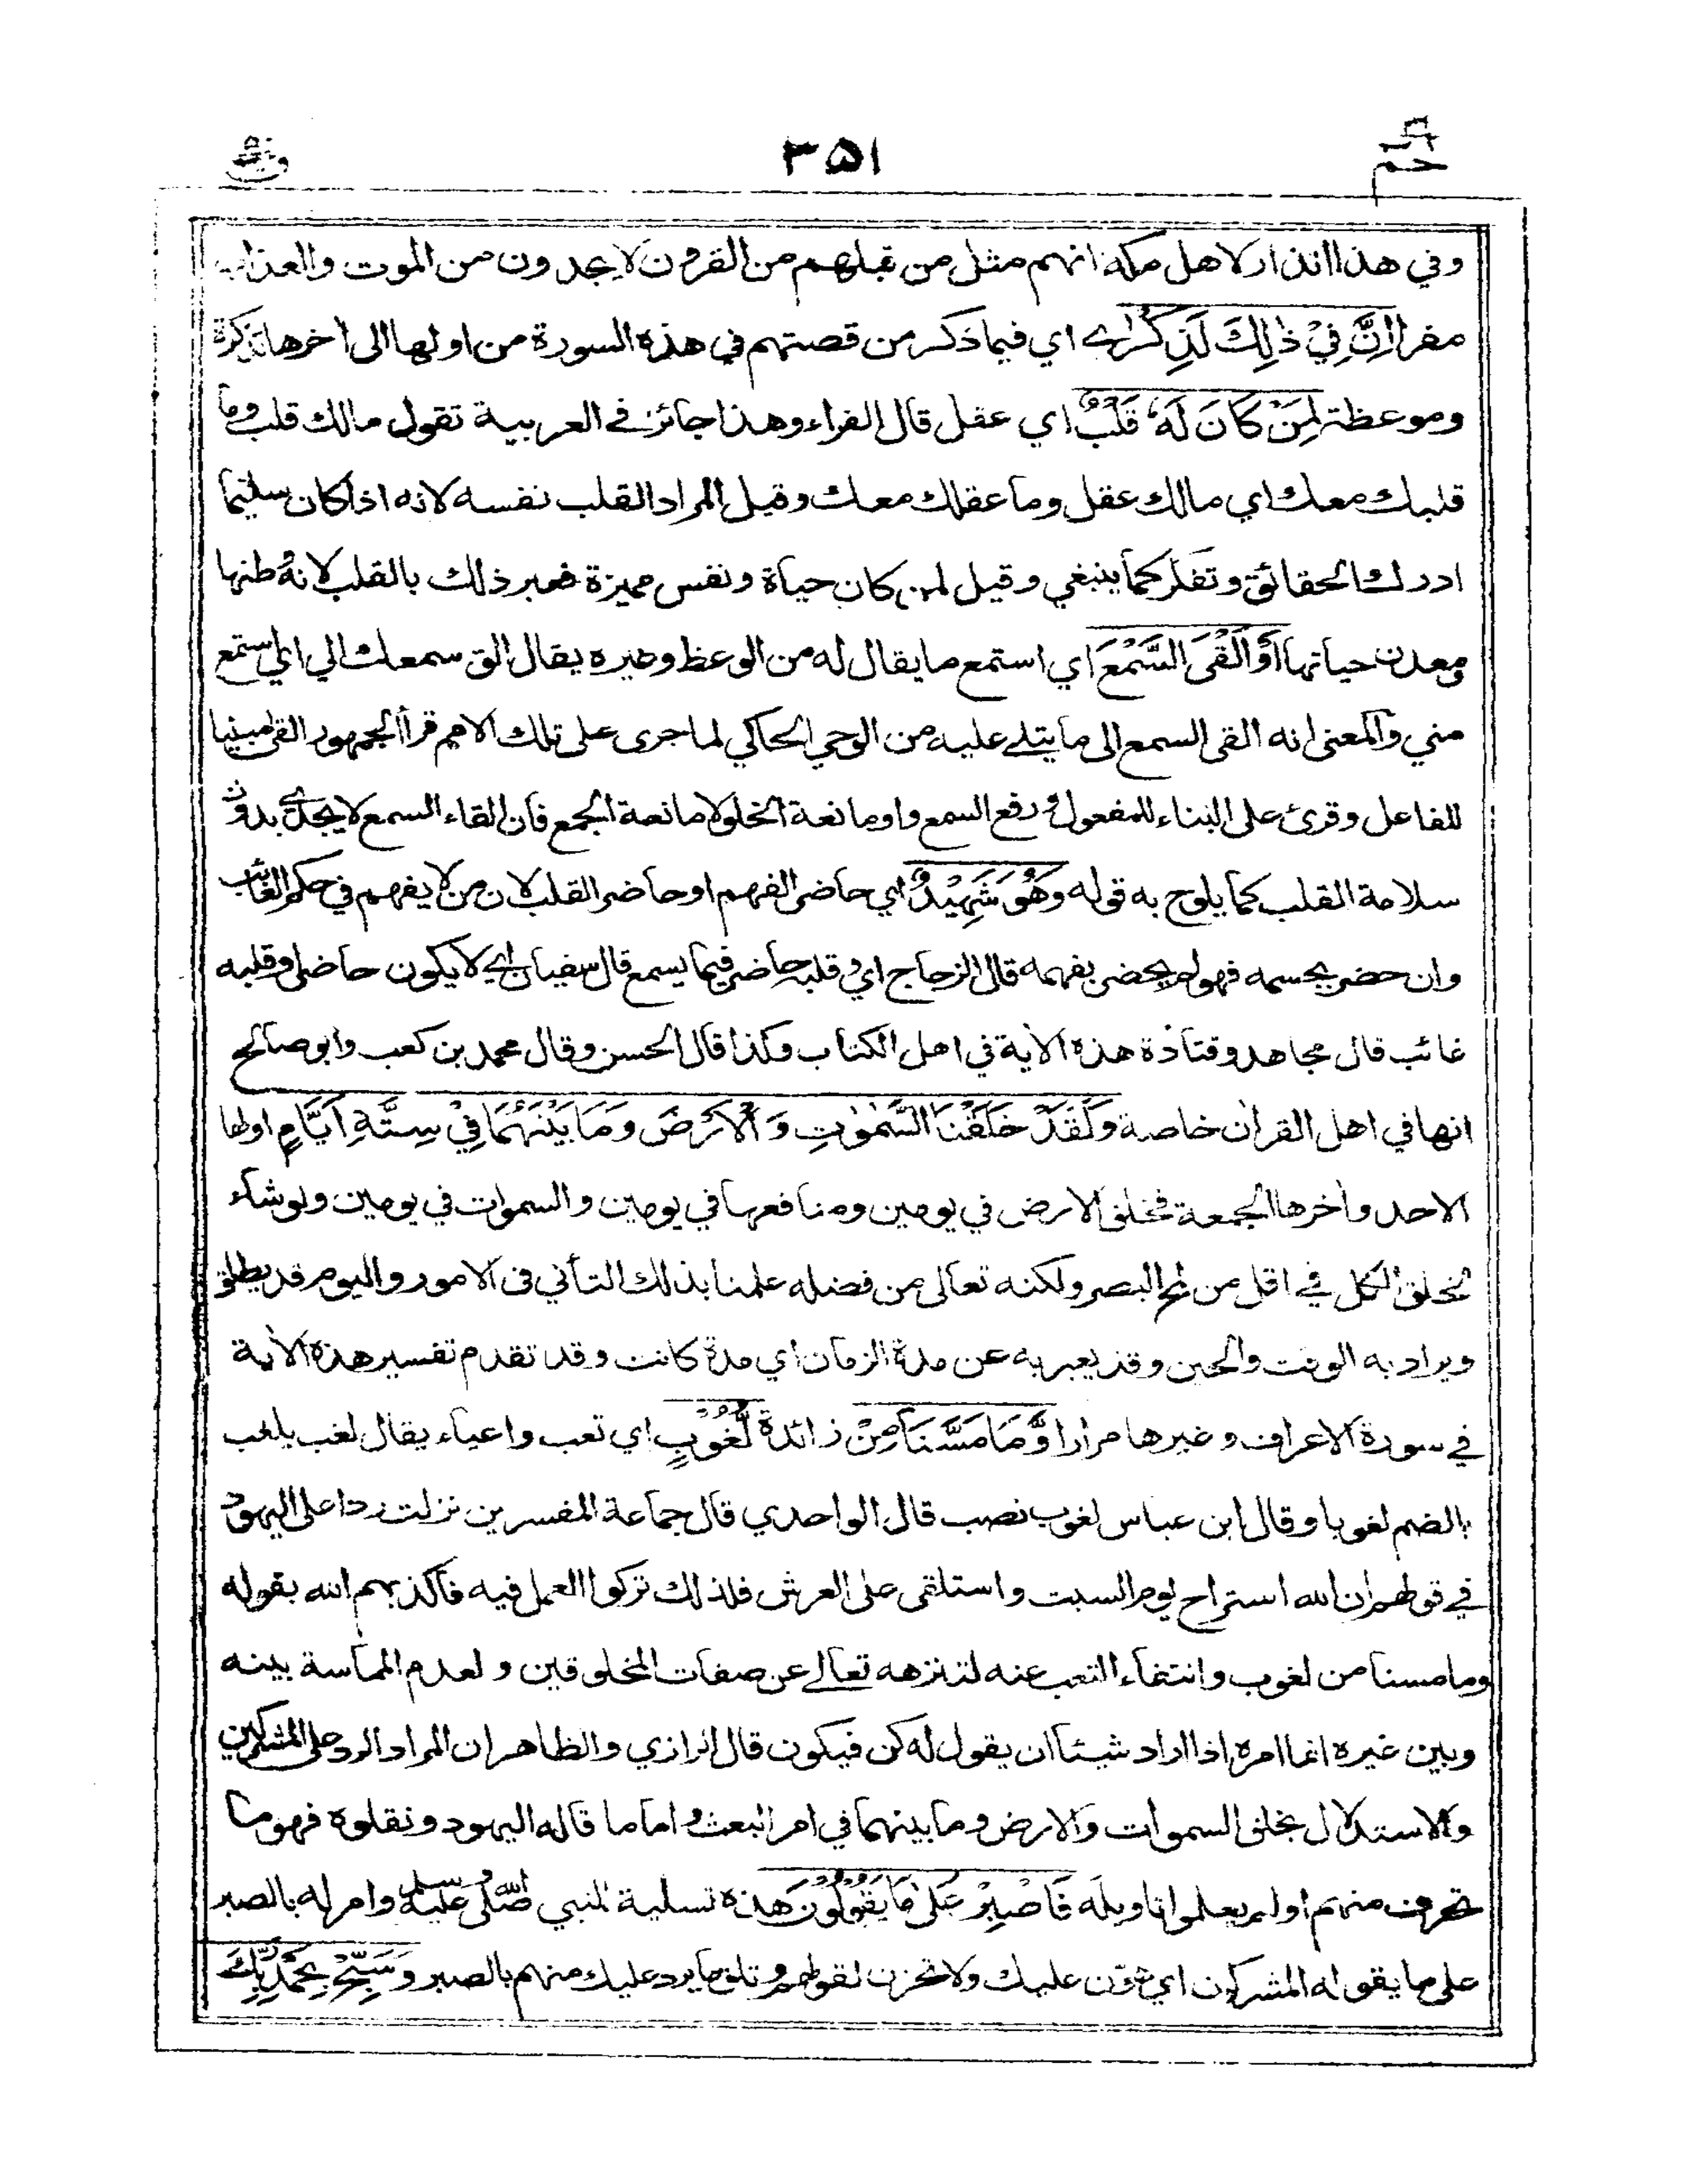 حم ٣٥١ ق
وفي هذا انذار لاهل مكة انهم مثل من قبلهم من القرون لا يجدون من الموت والعذاب
مفرا اِنَّ فِيْ ذٰلِكَ لَذِكْرٰے اي فيما ذكر من قصتهم في هذه السورة من اولها الى اخرها تذكرة
وموعظة لِمَنْ كَانَ لَهٗ قَلْبٌ اي عقل قال الفراء وهذا جائز في العربية تقول مالك قلب وما
قلبك معك اي مالك عقل وما عقلك معك وقيل المراد القلب نفسه لانه اذا كان سليما
ادرك الحقائق وتفكر كما ينبغي وقيل لمن كان حياة ونفس مميزة فعبر ذلك بالقلب لانه وطنها
ومعدن حياتها اَوْ اَلْقَى السَّمْعَ اي استمع ما يقال له من الوعظ وغيره يقال الق سمعك الي اي استمع
مني والمعنى انه القى السمع الى ما يتلے عليه من الوحي الحاكي لما جرى على تلك الامم قرأ الجمهور القى مبنيا
للفاعل وقرئ على البناء للمفعول و رفع السمع واو مانعة الخلو لا مانعة الجمع فان القاء السمع لا يجدي بدون
سلامة القلب كما يلوح به قوله وَهُوَ شَهِيْدٌ اي حاضر الفهم او حاضر القلب لان من لا يفهم في حكم الغائب
وان حضر بجسمه فهو لم يحضر بفهمه قال الزجاج اي وقلبه حاضر فيما يسمع قال سفيان اے لا يكون حاضرا وقلبه
غائب قال مجاهد وقتادة هذه الاية في اهل الكتاب وكذا قال الحسن وقال محمد بن كعب وابو صالح
انها في اهل القران خاصة وَلَقَدْ خَلَقْنَا السَّمٰوٰتِ وَالْاَرْضَ وَمَا بَيْنَهُمَا فِيْ سِتَّةِ اَيَّامٍ اولها
الاحد واخرها الجمعة فخلق الارض في يومين ومنافعها في يومين والسموات في يومين ولو شاء
لخلق الكل في اقل من لمح البصر ولكنه تعالى من فضله علمنا بذلك التأني فى الامور واليوم قد يطلق
ويراد به الوقت والحين وقد يعبر به عن مدة الزمان اي مدة كانت وقد تقدم تفسير هذه الاية
في سورة الاعراف وغيرها مرارا وَّمَا مَسَّنَا مِنْ زائدة لُّغُوْبٍ اي تعب واعياء يقال لغب يلغب
بالضم لغوبا وقال ابن عباس لغوب نصب قال الواحدي قال جماعة المفسرين نزلت ردا على اليهود
في قولهم ان الله استراح يوم السبت واستلقى على العرش فلذلك تركوا العمل فيه فاكذبهم الله بقوله
وما مسنا من لغوب وانتفاء التعب عنه لتنزهه تعالے عن صفات المخلوقين ولعدم المماسة بينه
وبين غيره انما امره اذا اراد شيئا ان يقول له كن فيكون قال الرازي والظاهر ان المراد الرد على المشركين
والاستدلال بخلق السموات والارض وما بينهما في امر البعث واما ما قاله اليهود ونقلوه فهو مما
تحرف منهم او لم يعلموا تاويله فَاصْبِرْ عَلٰى مَا يَقُوْلُوْنَ هذه تسلية للنبي صلى الله عليه وسلم وامر له بالصبر
على ما يقوله المشركون اي هوّن عليك ولا تحزن لقولهم وتلق ما يرد عليك منهم بالصبر وَسَبِّحْ بِحَمْدِ رَبِّكَ